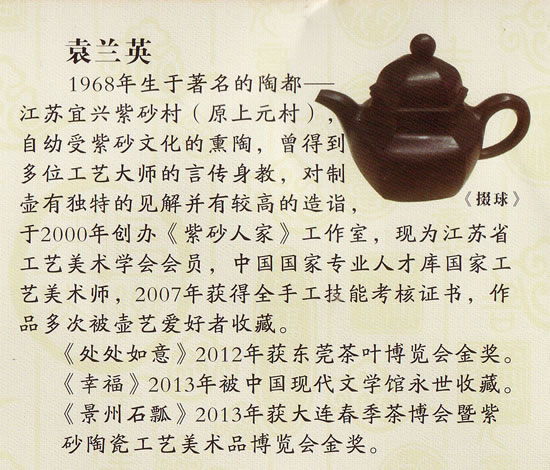 袁兰英
1968年生于著名的陶都——
江苏宜兴紫砂村（原上元村），
自幼受紫砂文化的熏陶，曾得到
多位工艺大师的言传身教，对制
壶有独特的见解并有较高的造诣，
《掇球》
于2000年创办《紫砂人家》工作室，现为江苏省
工艺美术学会会员，中国国家专业人才库国家工
艺美术师，2007年获得全手工技能考核证书，作
品多次被壶艺爱好者收藏。
《处处如意》2012年获东莞茶叶博览会金奖。
《幸福》2013年被中国现代文学馆永世收藏。
《景州石瓢》2013年获大连春季茶博会暨紫
砂陶瓷工艺美术品博览会金奖。